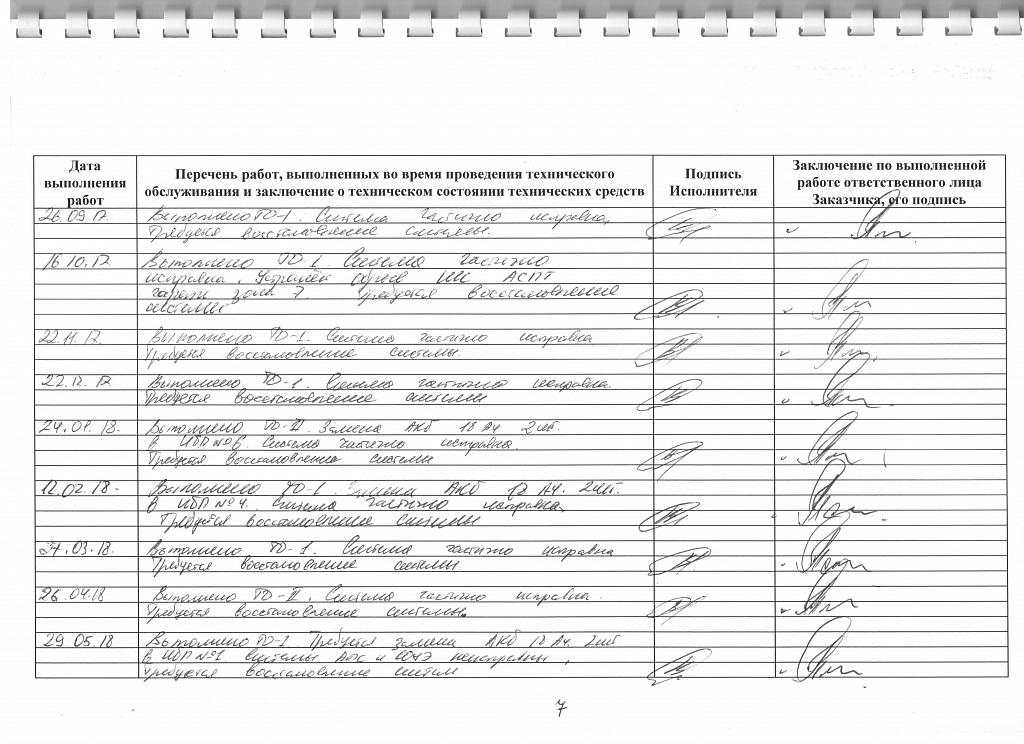 Дата
выполнения
работ
Перечень работ, выполненных во время проведения технического
обслуживания и заключение о техническом состоянии технических средств
Подпись
Исполнителя
Заключение по выполненной
работе ответственного лица
Заказчика, его подпись
26.09.17. Выполнено ТО-1. Система частично исправна,
Требуется восстановление системы.
16.10.17 Выполнено ТО-1. Система частично
исправна. Устранён обрыв АСПТ
зона 7. Требуется восстановление
системы
22.11.17. Выполнено ТО-1. Система частично исправна
Требуется восстановление системы.
22.12.17 Выполнено ТО-1. Система частично исправна.
Требуется восстановление системы
24.01.18. Выполнено ТО-II. Замена АКБ 18 Ач 2шт.
в ИБП №6. Система частично исправна.
Требуется восстановление системы
12.02.18- Выполнено ТО-1. Замена АКБ 17 Ач. 2шт.
в ИБП №4. Система частично исправна
Требуется восстановление системы
.03.18. Выполнено ТО-1. Система частично исправна
Требуется восстановление системы
26.04.18 Выполнено ТО-II. Система частично исправна.
Требуется восстановление системы.
29.05.18 Выполнено ТО-1. Требуется замена АКБ 17 Ач. 2шт
в ИБП №1. Системы АПС и СОУЭ неисправны,
требуется восстановление систем
7